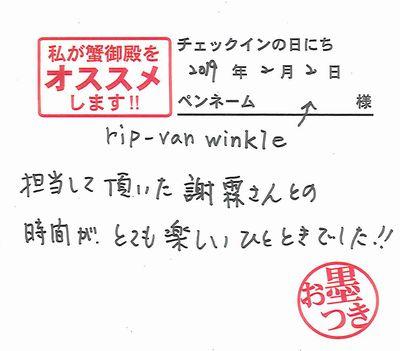 私が蟹御殿を
オススメ
します!!
チェックインの日にち
2019年2月2日
ペンネーム 様
rip-van winkle
担当して頂いた謝霖さんとの
時間が、とても楽しいひとときでした!!
お墨つき